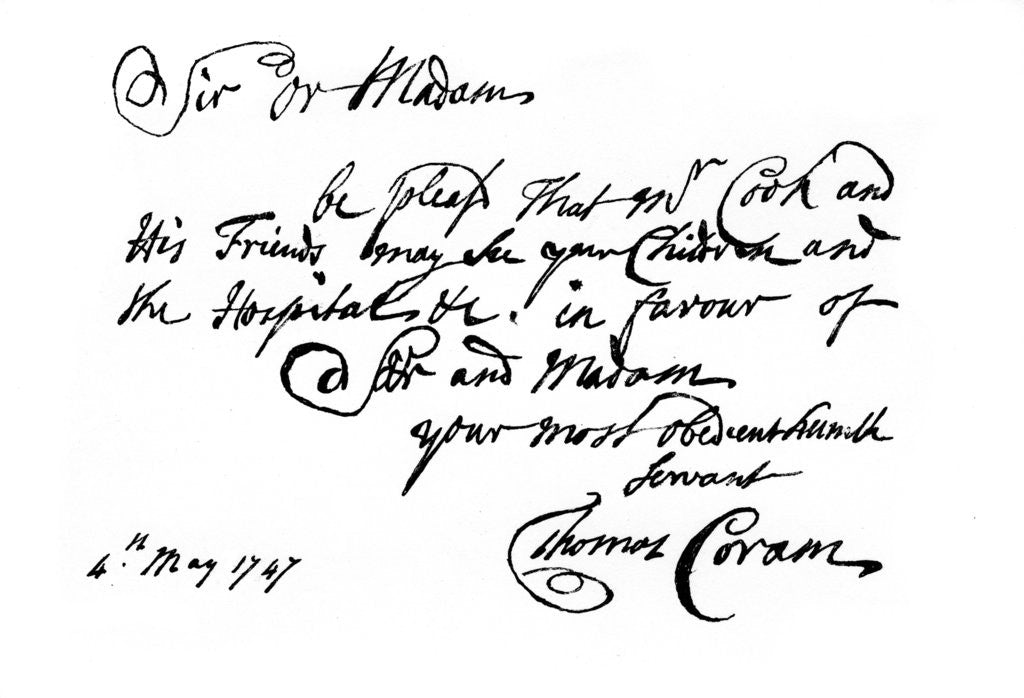 Sir Or Madam
be pleasd That Mr Cook and
His Friends may see your Children and
the Hospital &c. in favour of
Sir and Madam
your most obedient humble
Servant
Thomas Coram
4th May 1747